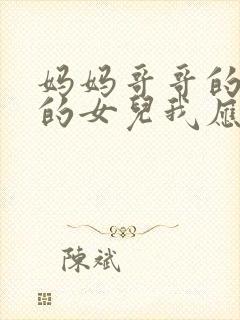 妈妈哥哥的
的女兒我應
陳斌